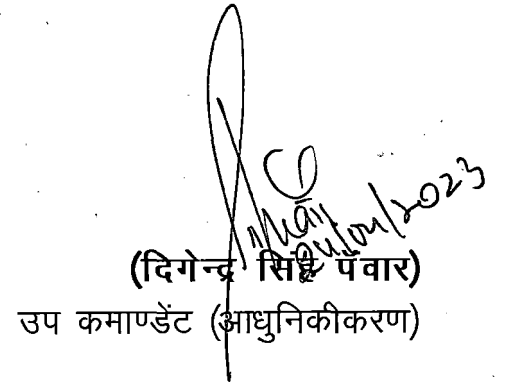 (दिगेन्द्र सिंह पंवार)
उप कमाण्डेंट (आधुनिकीकरण)